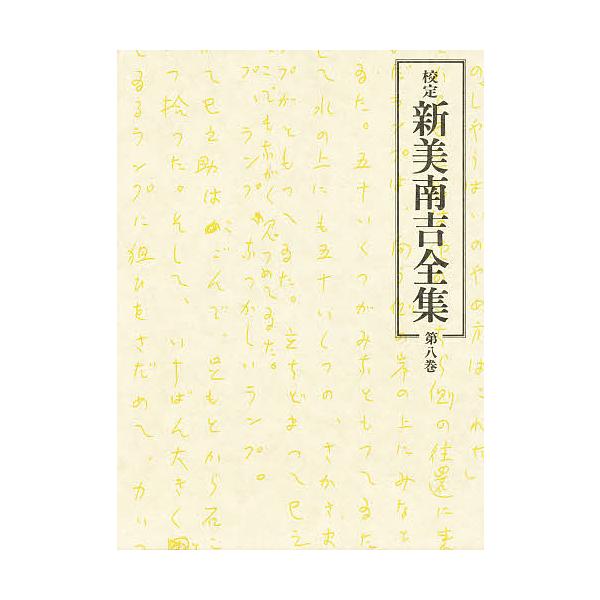 校定
新美南吉全集
第八巻
のしやうばいのやめ方はこれだ
側の往還に
岸の上にみな
るた。五十いくつがみなともつてるた
して水の上にも五十いくつの、さかさま
プがともつてゐた。立ちどまつて巳之
こでもながく見つめてゐた。
ランプ、なつかしいランプ。
て巳之助はかごんで、足もとから石こ
つ拾つた。そして、いちばん大きく
てゐるランプに狙ひをさだめて、力い